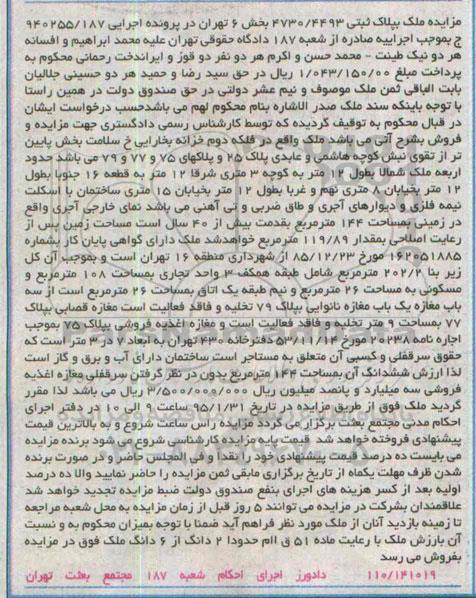 مزایده ملک بپلاک ثبتی ۴۷۳۰/۴۴۹۳ بخش ۶ تهران در پرونده اجرایی ۹۴۰۲۵۵/۱۸۷
ج بموجب اجراییه صادره از شعبه ۱۸۷ دادگاه حقوقی تهران علیه محمد ابراهیم و افسانه
هر دو نیک طینت - محمد حسن و اکرم هر دو نفر دو قوز و ایراندخت رحمانی محکوم به
پرداخت مبلغ ۱/۰۴۳/۱۵۰/۰۰ ریال در حق سید رضا و حمید هر دو حسینی جلالیان
بابت الباقی ثمن ملک موصوف و نیم عشر دولتی در حق صندوق دولت در همین راستا
با توجه باینکه سند ملک صدر الاشاره بنام محکوم لهم می باشدحسب درخواست ایشان
در قبال محکوم به توقیف گردیده که توسط کارشناس رسمی دادگستری جهت مزایده و
فروش بشرح آتی می باشد ملک واقع در فلکه دوم خزانه بخارایی خ سلامت بخش پایین
تر از تقوی نبش کوچه هاشمی و عابدی پلاک ۲۵ و پلاکهای ۷۵ و ۷۷ و ۷۹ می باشد حدود
اربعه ملک شمالا بطول ۱۲ متر به کوچه ۳ متری شرقا ۱۲ متر به قطعه ۱۶ جنوبا بطول
۱۲ متر بخیابان ۸ متری نهم و غربا بطول ۱۲ متر بخیابان ۱۵ متری ساختمان با اسکلت
نیمه فلزی و دیوارهای آجری و طاق ضربی و تی آهنی می باشد نمای خارجی آجری واقع
در زمینی بمساحت ۱۴۴ مترمربع بقدمت بیش از ۴۰ سال است مساحت زمین پس از
رعایت اصلاحی بمقدار ۱۱۹/۸۹ مترمربع خواهدشد ملک دارای گواهی پایان کار بشماره
۱۶۲۰۵۱۸۸۵ مورخ ۸۵/۱۲/۲۳ از شهرداری منطقه ۱۶ تهران است و بموجب آن کل
زیر بنا ۲۰۲/۲ مترمربع شامل طبقه همکف ۳ واحد تجاری بمساحت ۱۰۸ مترمربع و
مسکونی به مساحت ۲۶ مترمربع و نیم طبقه یک اتاق بمساحت ۲۶ مترمربع است از سه
باب مغازه یک باب مغازه نانوایی بپلاک ۷۹ تخلیه و فاقد فعالیت است مغازه قصابی بپلاک
۷۷ بمساحت ۹ متر تخلیه و فاقد فعالیت است و مغازه اغذیه فروشی بپلاک ۷۵ بموجب
اجاره نامه ۲۰۲۳۸ مورخ ۵۳/۱۱/۱۴ دفترخانه ۴۳۰ تهران به ابعاد ۷ در ۳ متر است که
حقوق سرقفلی و کسبی آن متعلق به مستاجر است ساختمان دارای آب و برق و گاز است
لذا ارزش ششدانگ آن بمساحت ۱۴۴ مترمربع بدون در نظر گرفتن سرقفلی مغازه اغذیه
فروشی سه میلیارد و پانصد میلیون ریال ۳/۵۰۰/۰۰۰/۰۰۰ ریال می باشد لذا مقرر
گردید ملک فوق از طریق مزایده در تاریخ ۹۵/۱/۳۱ ساعت ۹ الی ۱۰ در دفتر اجرای
احکام مدنی مجتمع بعثت برگزار می گردد مزایده راس ساعت شروع و به بالاترین قیمت
پیشنهادی فروخته خواهد شد قیمت پایه مزایده کارشناسی شروع می شود برنده مزایده
می بایست ده درصد قیمت پیشنهادی خود را نقدا و فی المجلس حاضر و در صورت برنده
شدن ظرف مهلت یکماه از تاریخ برگزاری مابقی ثمن مزایده را حاضر نمایید والا ده درصد
اولیه بعد از کسر هزینه های اجرای بنفع صندوق دولت ضبط مزایده تجدید خواهد شد
علاقمندان بشرکت در مزایده می توانند ۵ روز قبل از زمان مزایده به محل شعبه مراجعه
تا زمینه بازدید آنان از ملک مورد نظر فراهم آید ضمنا با توجه بمیزان محکوم به و نسبت
آن بارزش ملک با رعایت ماده ۵۱ ق اام حدودا ۲ دانگ از ۶ دانگ ملک فوق در مزایده
بفروش می رسد
۱۱۰/۱۴۱۰۱۹ دادورز اجرای احکام شعبه ۱۸۷ مجتمع بعثت تهران